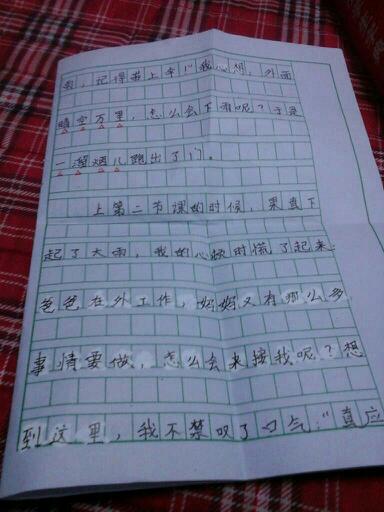 雨，记得带上伞！"我心想，外面
晴空万里，怎么会下雨呢？于是
一溜烟儿跑出了门。
上第二节课的时候，果真下
起了大雨，我的心顿时慌了起来：
爸爸在外工作，妈妈又有那么多
事情要做，怎么会来接我呢？想
到这里，我不禁叹了口气："真应